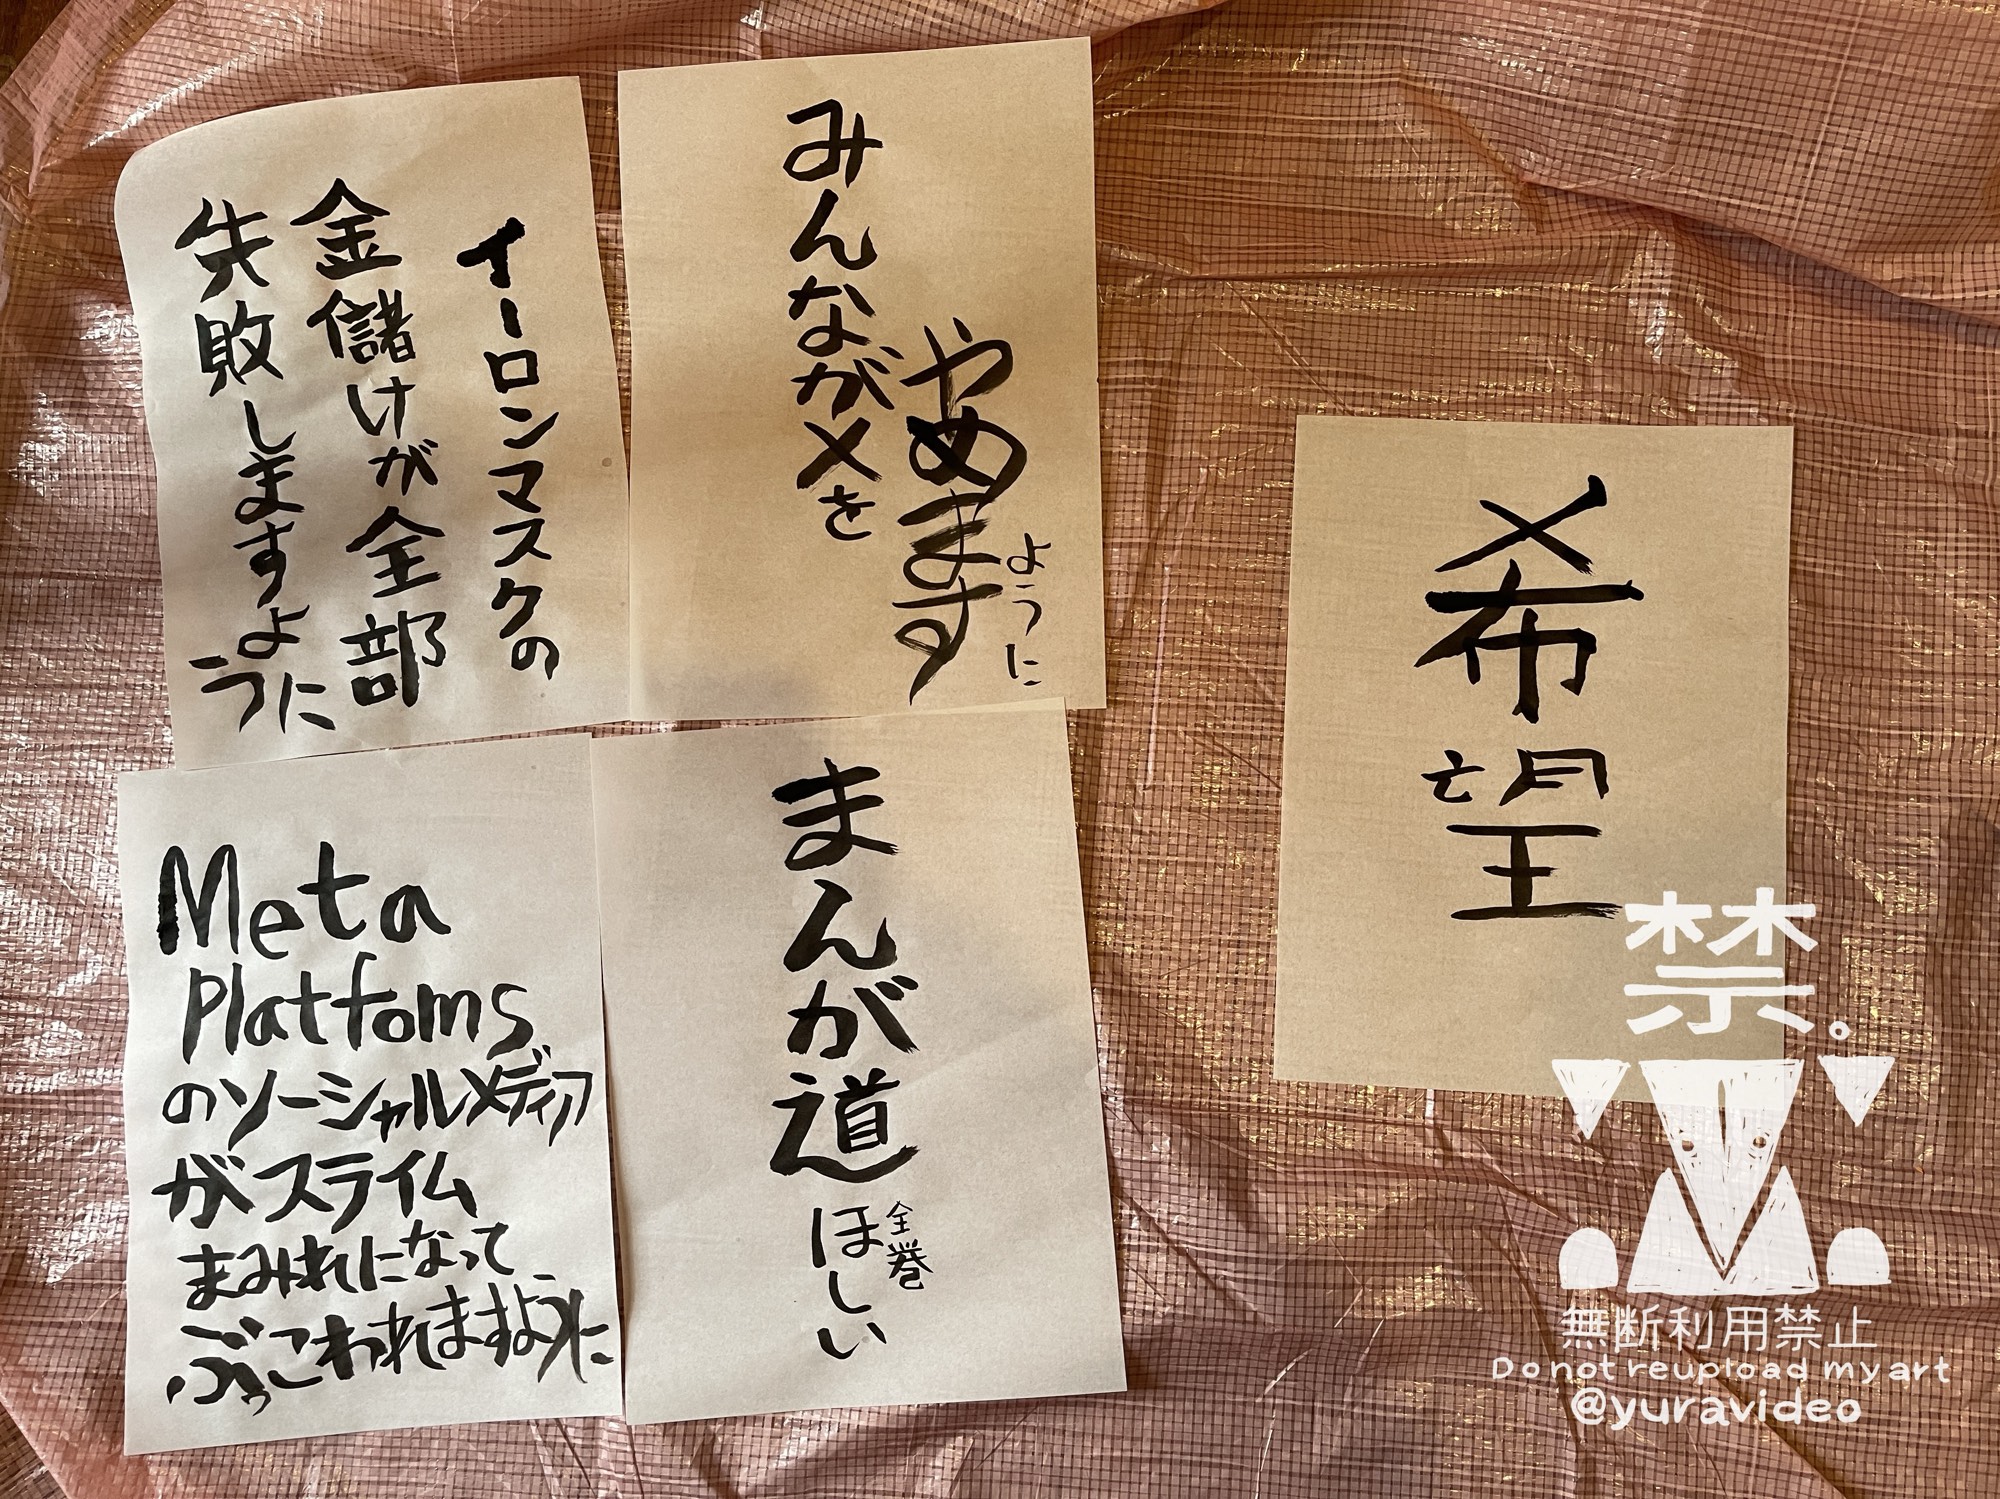 希望
みんながXを
やめます
ように
イーロンマスクの
金儲けが全部
失敗しますよ
うに
まんが道
全巻
ほしい
Meta
Platfoms
のソーシャルメディア
がスライム
まみれになって
ぶっこわれますように
禁。
無断利用禁止
Do not reupload my art
@yuravideo